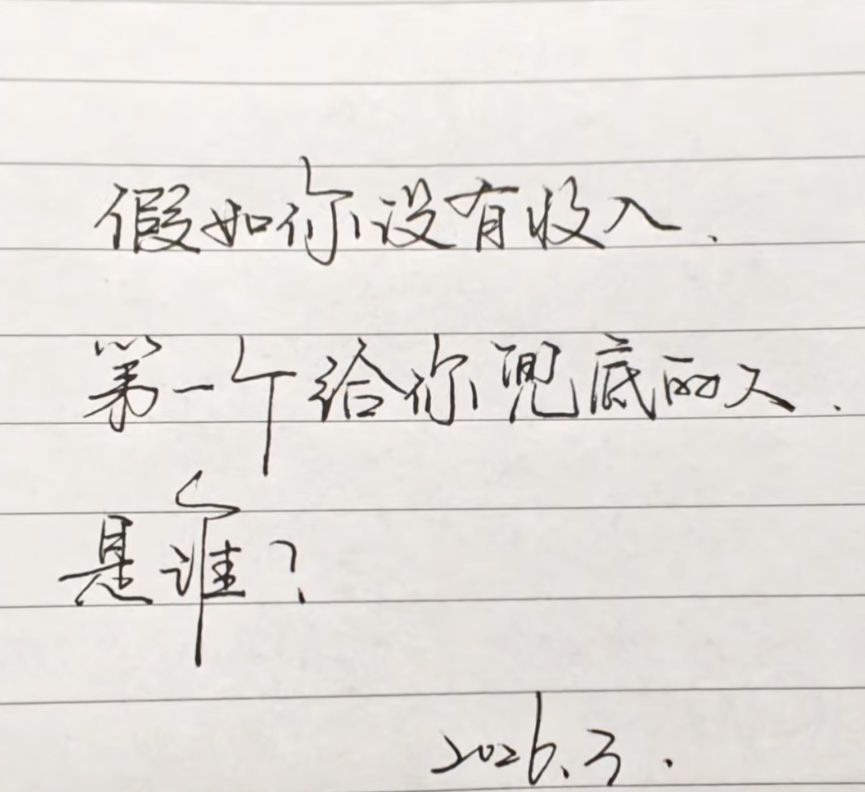 假如你没有收入.
第一个给你兜底的人.
是谁?
2026.3.